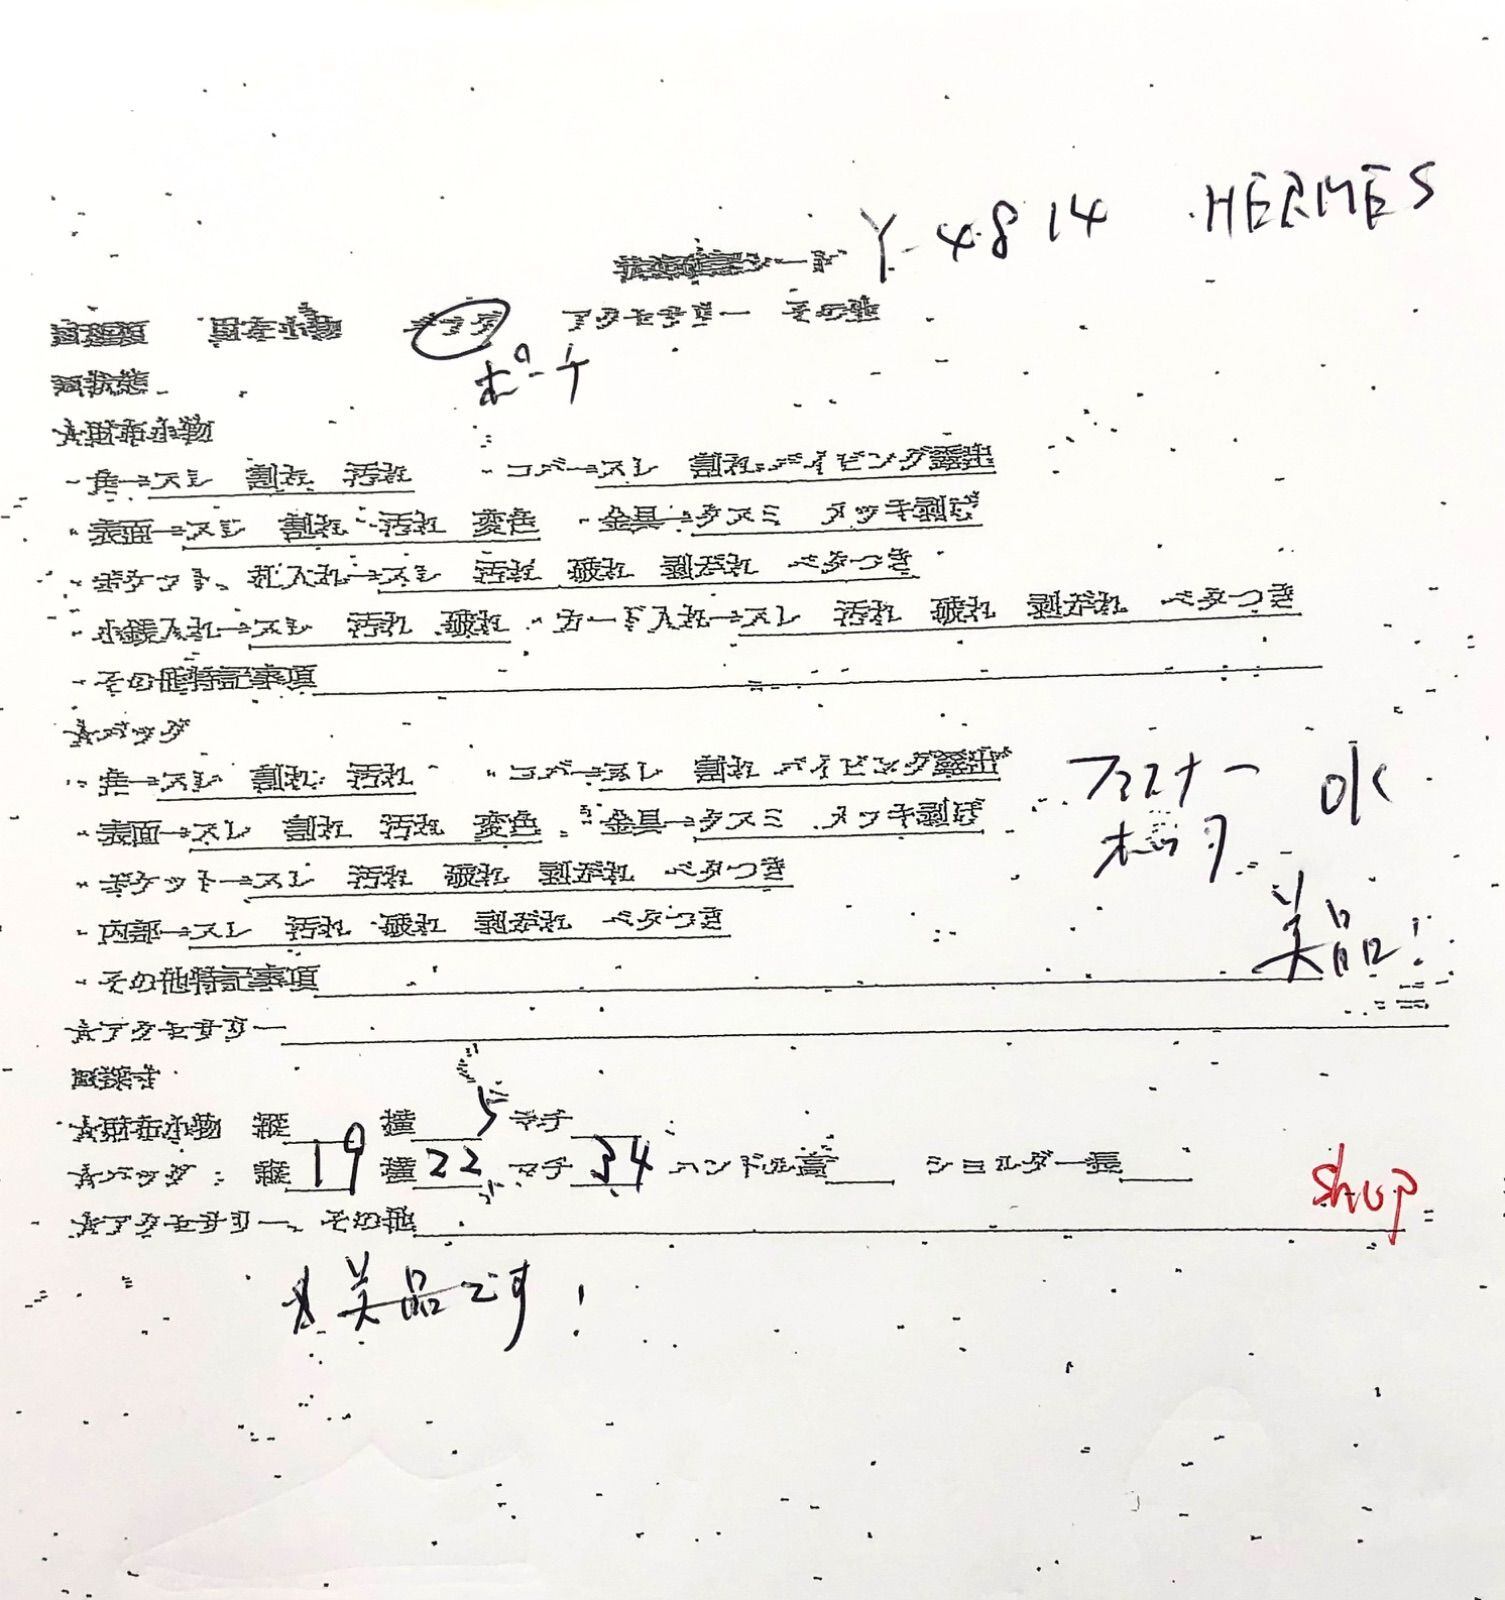 Y-4814 HERMES
財布小物 バッグ アクセサリー その他
ポーチ
状態
☆財布小物
・角→スレ 割れ 汚れ ・コバ→スレ 割れ パイピング露出
・表面→スレ 割れ 汚れ 変色 ・金具→クスミ メッキ剥げ
・ポケット、札入れ→スレ 汚れ 破れ 剥がれ ベタつき
・小銭入れ→スレ 汚れ 破れ ・カード入れ→スレ 汚れ 破れ 剥がれ ベタつき
・その他特記事項
☆バッグ
・角→スレ 割れ 汚れ ・コバ→スレ 割れ パイピング露出
ファスナー OK
・表面→スレ 割れ 汚れ 変色 ・金具→クスミ メッキ剥げ
・ポケット→スレ 汚れ 破れ 剥がれ ベタつき
・内部→スレ 汚れ 破れ 剥がれ ベタつき
美品!
・その他特記事項
☆アクセサリー
採寸
☆財布小物 縦 横 マチ
☆バッグ:縦19 横22 マチ ハンドル高 ショルダー長
shop
☆アクセサリー、その他
美品です!